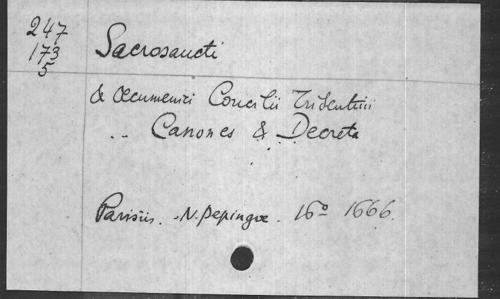 247
173
5
Sacrosancti
& Œcumenici Concilii Tridentini
.. Canones & Decreta
Parisiis. N. Pepingue. 16º 1666.